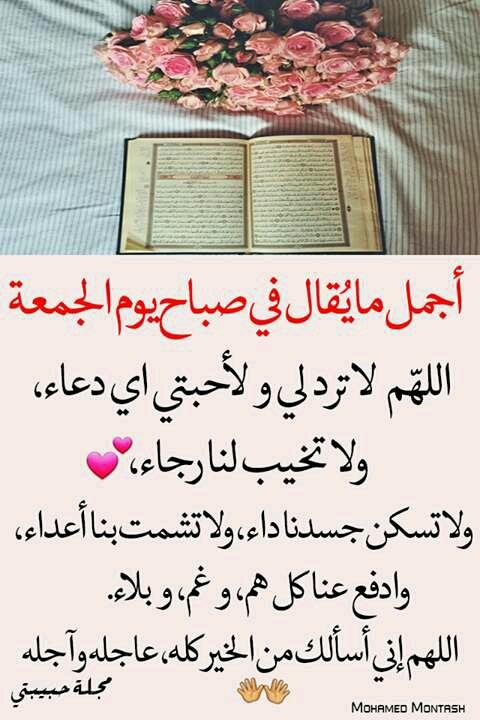 أجمل ما يُقال في صباح يوم الجمعة
اللهّم لا ترد لي و لأحبتي اي دعاء،
ولا تخيب لنا رجاء،💕
ولا تسكن جسدنا داء، ولا تشمت بنا أعداء،
وادفع عنا كل هم، و غم، و بلاء.
اللهم إني أسألك من الخير كله، عاجله وآجله
👐 مجلة حبيبتي
MOHAMED MONTASH